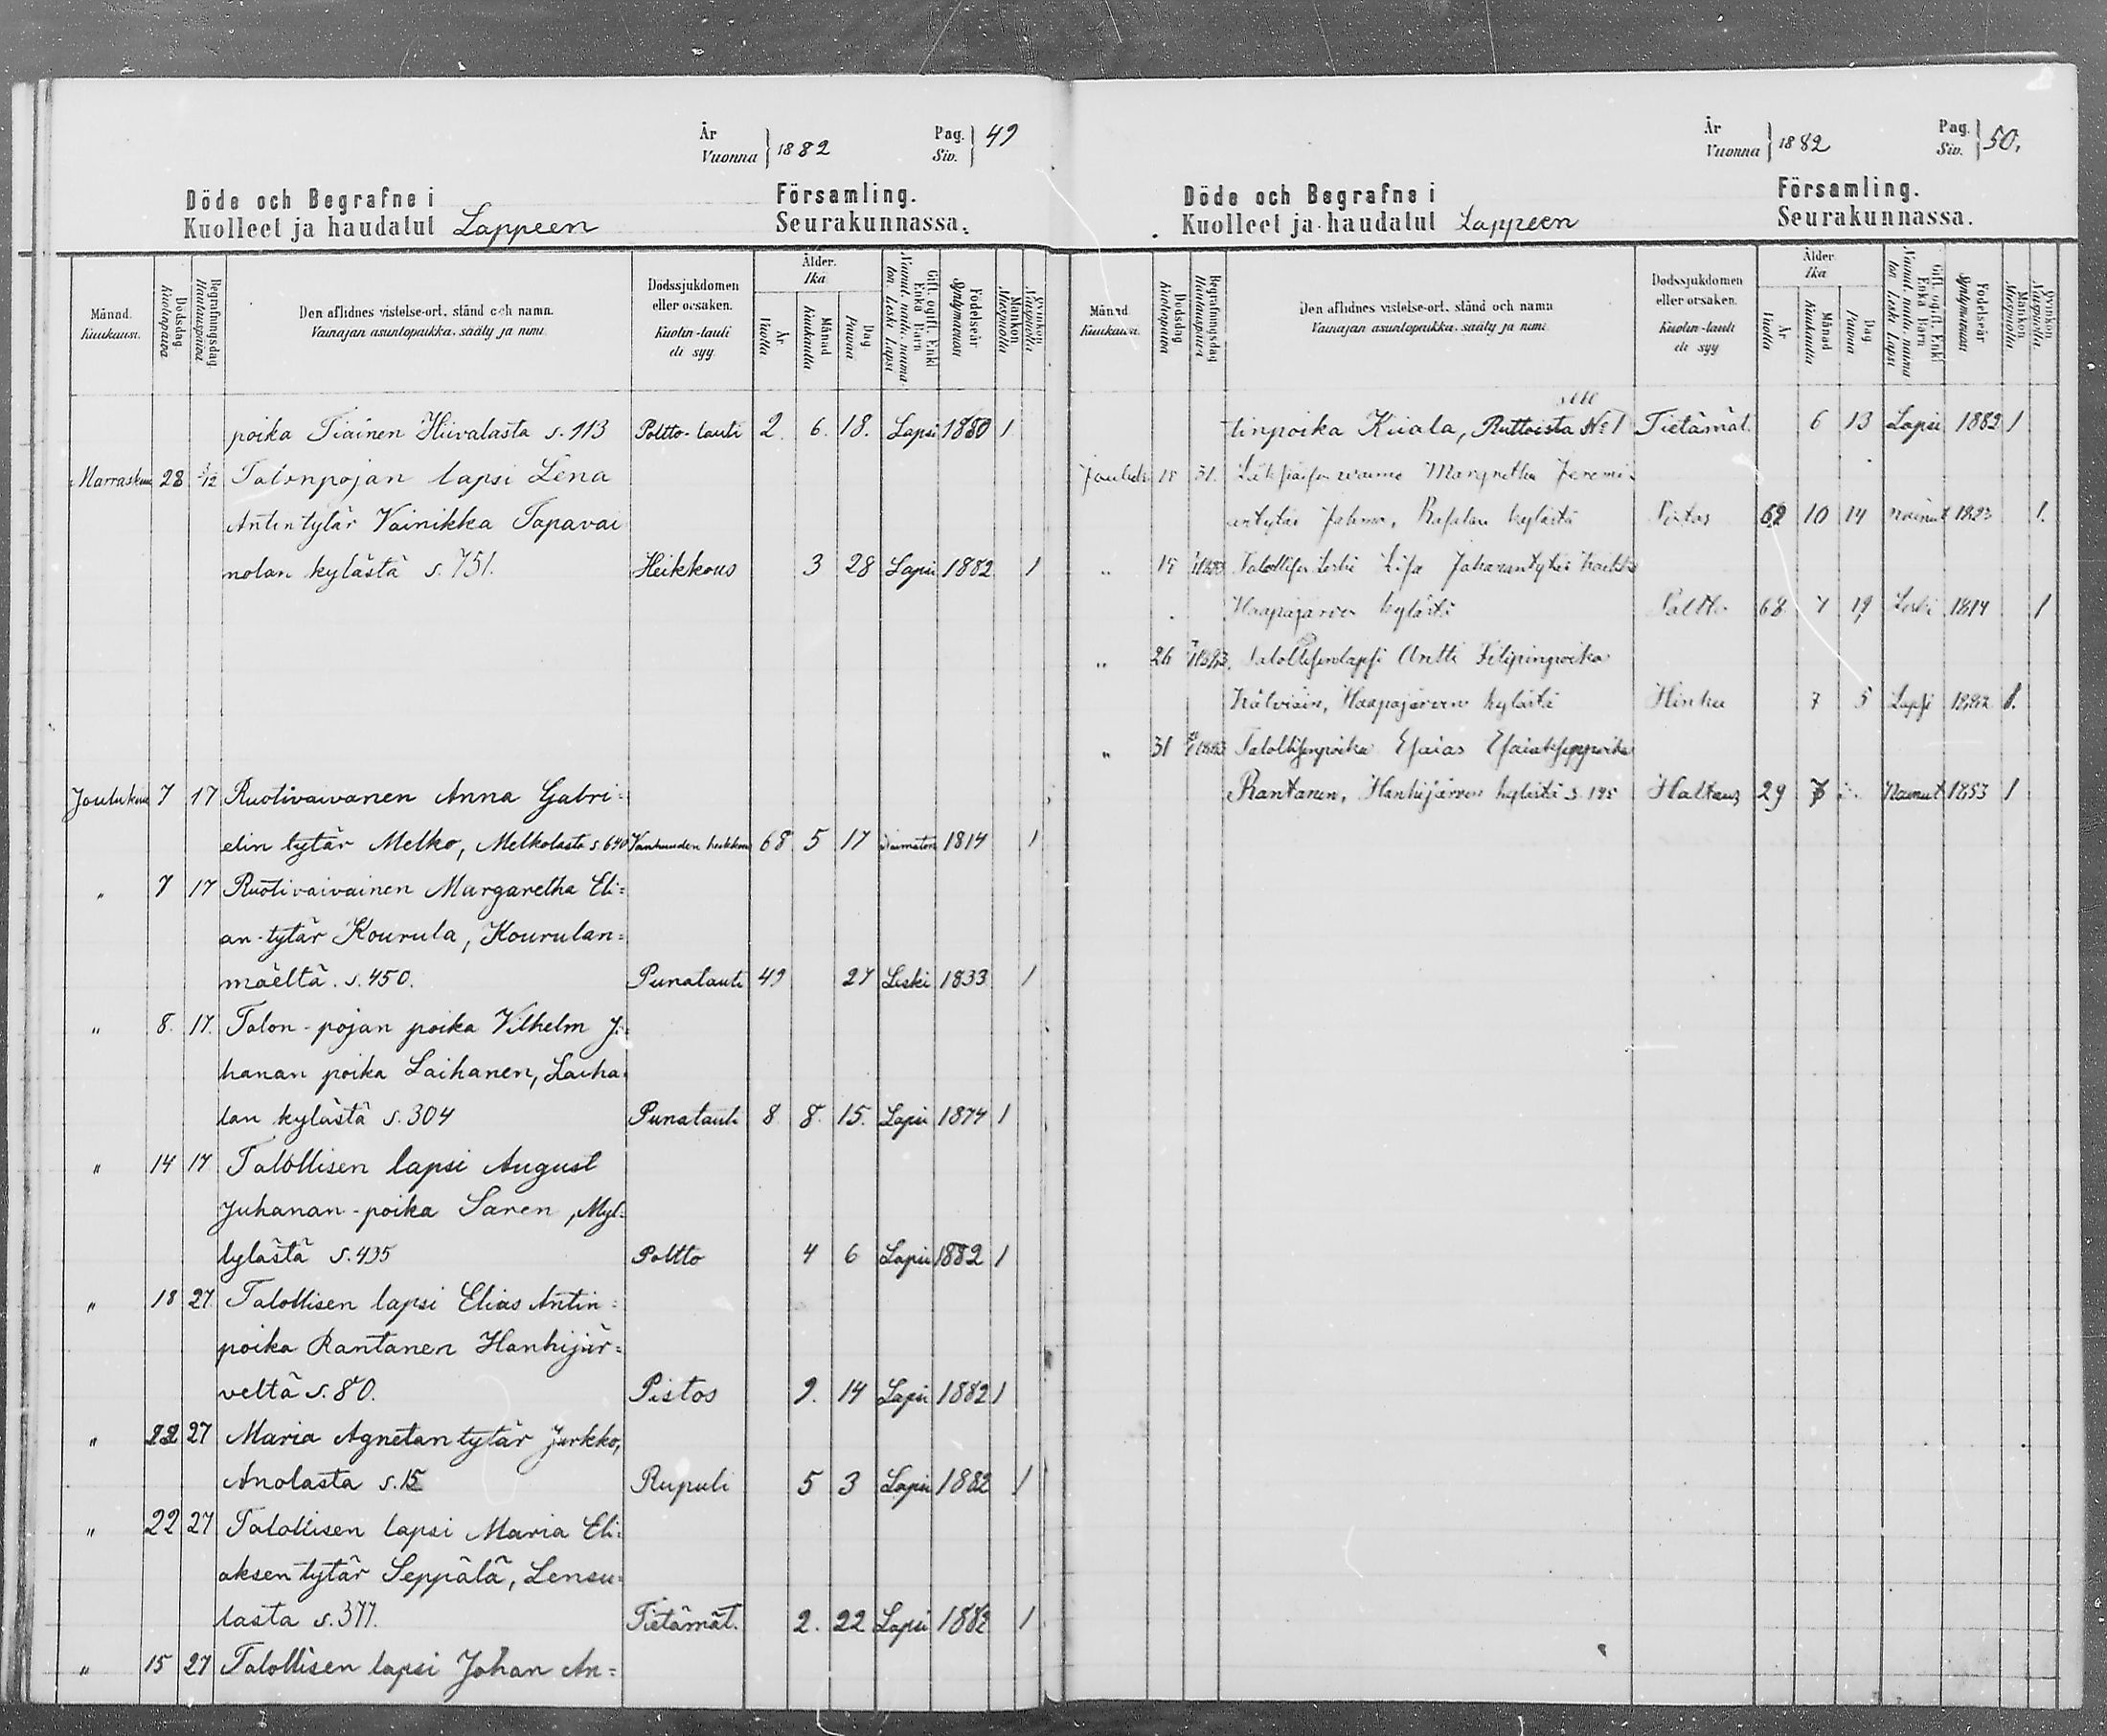 År
Vuonna } 1882
Pag.
Siv. } 49
Döde och Begrafne i Församling.
Kuolleet ja haudatut Lappeen Seurakunnassa.
Månad. Kuukausi.
Dödsdag Kuolinpäivä
Begrafningsdag Hautauspäivä
Den aflidnes vistelse-ort, stånd och namn.
Vainajan asuntopaikka, sääty ja nimi.
Dödssjukdomen
eller orsaken.
Kuolin-tauti
eli syy.
Ålder.
Ikä
År Vuotta
Månad Kuukautta
Dag Päivää
Gift, ogift, Enkl. Enka Barn
Födelseår Syntymävuosi
Mankön Miespuolia
Qvinkön Naispuolia
poika Tiainen Hiivalasta s. 113 Poltto-tauti 2. 6. 18. Lapsi 1880 1
Marraskuu 28 3/12 Talonpojan lapsi Lena
Antintytär Vainikka Tapavai
nolan kylästä s. 751. Heikkous 3 28 Lapsi 1882 1
Joulukuu 7 17 Ruotivaivanen Anna Gabri=
elin tytär Melko, Melkolasta s. 640 Vanhuuden heikkous 68 5 17 Naimaton 1814 1
" 7 17 Ruotivaivainen Margaretha Eli=
an-tytär Kourula, Kourulan=
mäeltä. s. 450. Punatauti 49 27 Leski 1833 1
" 8. 17. Talon-pojan poika Vilhelm Ju=
hanan poika Laihanen, Laiha=
lan kylästä s. 304 Punatauti 8 8. 15. Lapsi 1874 1
" 14 17 Talollisen lapsi August
Juhanan-poika Saren, Myl=
lylästä s. 435 Poltto 4 6 Lapsi 1882 1
" 18 27. Talollisen lapsi Elias Antin=
poika Rantanen Hanhijär=
veltä s. 80. Pistos 9. 14 Lapsi 1882 1
" 22 27 Maria Agnetan tytär Jurkko,
Anolasta s. 15 Rupuli 5 3 Lapsi 1882 1
" 22 27 Talollisen lapsi Maria Eli=
aksen tytär Seppälä, Lensu=
lasta s. 377. Tietämät. 2. 22 Lapsi 1882 1
" 15 27 Talollisen lapsi Johan An=
År
Vuonna } 1882
Pag.
Siv. } 50.
Döde och Begrafne i Församling.
Kuolleet ja haudatut Lappeen Seurakunnassa.
Månad. Kuukausi.
Dödsdag Kuolinpäivä
Begrafningsdag Hautauspäivä
Den aflidnes vistelse-ort, stånd och namn
Vainajan asuntopaikka, sääty ja nimi.
Dödssjukdomen
eller orsaken.
Kuolin-tauti
eli syy
Ålder.
Ikä
År Vuotta
Månad Kuukautta
Dag Päivää
Gift, ogift, Enkl. Enka Barn
Födelseår Syntymävuosi
Mankön Miespuolia
Qvinkön Naispuolia
tinpoika Kiiala, Ruttoista No 1 Tietämät. 6 13 Lapsi 1882 1
Jouluk. 18 31. waimo Margretha Jeremi=
kylästä Pistos 62 10 14 Nainut 1823 1.
" 19 Talollisen Leski Lisa Juhanantytär
Haapajärven kylästä Poltto 68 7 19 Leski 1814 1
" 26 Talollisen lapsi Antti Filipinpoika
Kälviäin, Haapajärven kylästä Hinku 7 5 Lapsi 1882 1.
" 31 Talollisen poika Esaias
Rantanen, Hanhijärven kylästä s. 195 Halkaus 29 7 Nainut 1853 1